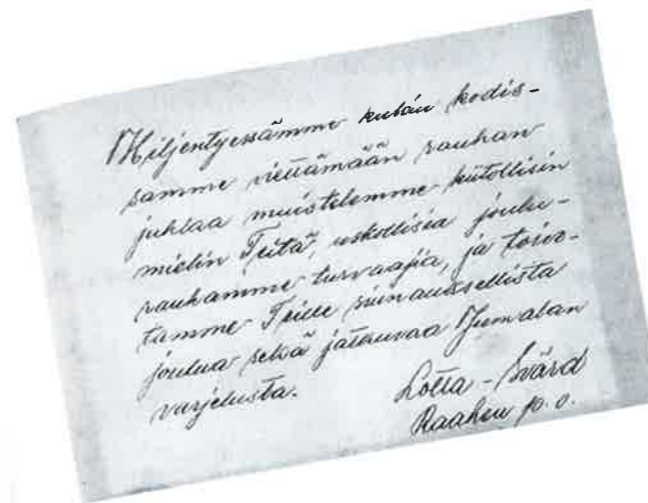 Hiljentyessämme kukin kodis-
samme viettämään rauhan
juhlaa muistelemme kiitollisin
mielin Teitä, uskollisia joulu-
rauhamme turvaajia, ja toivo-
tamme Teille siunauksellista
joulua sekä jatkuvaa Jumalan
varjelusta.
Lotta-Svärd
Raahen p.o.